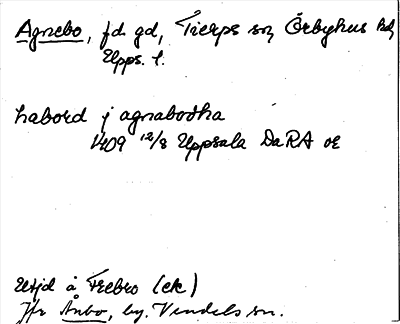 Agnebo, fd gd, Tierps sn, Örbyhus hd,
Upps. l.
habord j agnabodha
1409 12/8 Uppsala DaRA oe
Utjd å Frebro (ek)
Jfr Ånbo, by. Vendels sn.